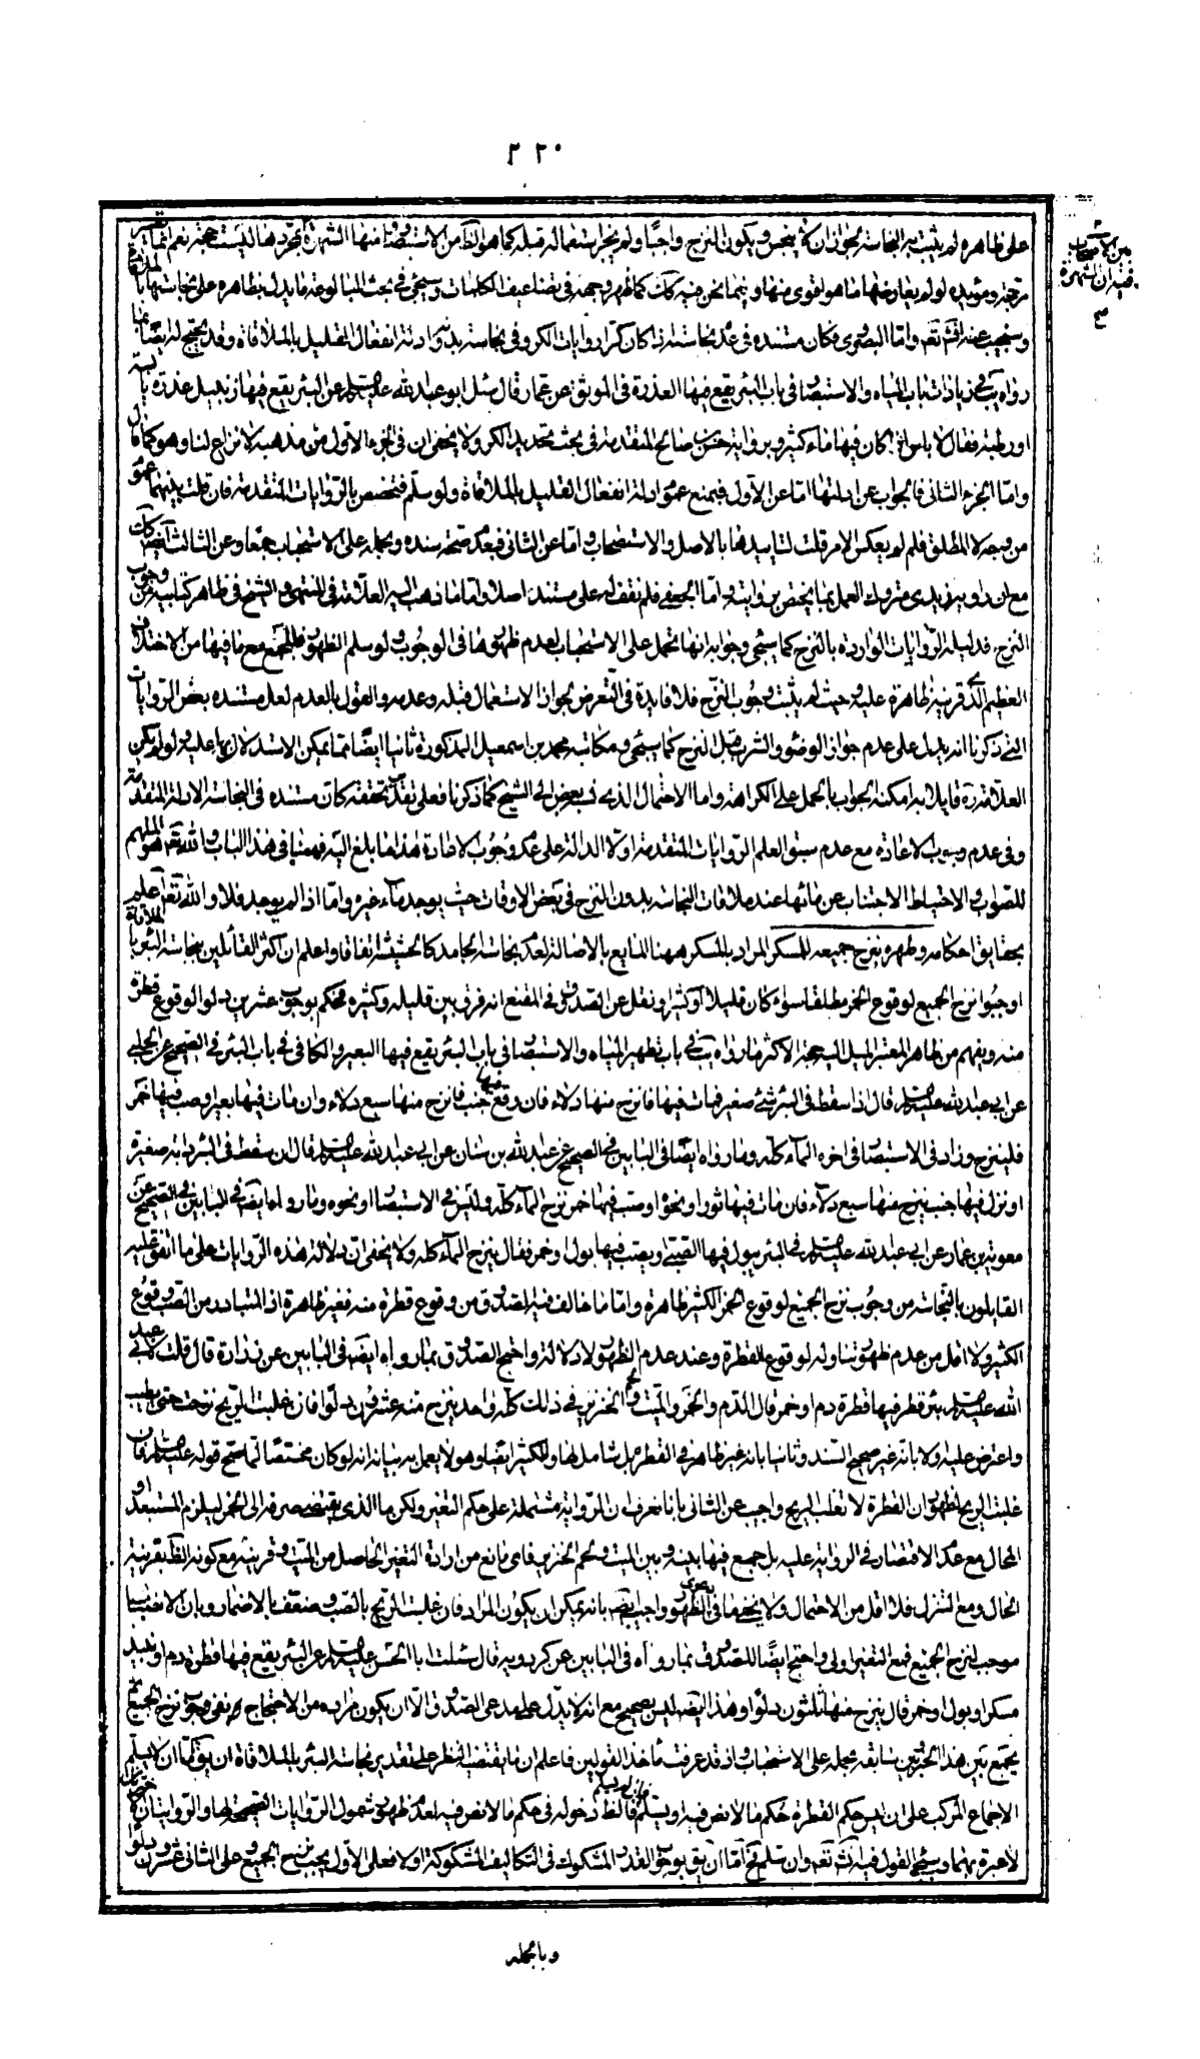 ٢٢٠
على ظاهره لم يثبت به النجاسة لجواز ان لا ينجس ويكون النزح واجبًا ولم يجز استعماله قبله كما هو الظ من الاستبصار ومنها الشهرة بمجردها ليست حجة نعم انها تصير
من الاصحاب فيه ان الشهرة
مرجحة ومؤيدة لو لم يعارضها ما هو اقوى منها وفيما نحن فيه كك كما ظهر وجهه في تضاعيف الكلمات وسيجئ في بحث المبالوعة ما يدل بظاهره على نجاستها بالملاقاة
وسنجيب عنه انش تعم واما البصروى فكان مستنده في عدم نجاسته اذا كان كرا روايات الكر وفي نجاسته بدونه ادلة انفعال القليل بالملاقاة وقد يحتج له ايضا بما
رواه يب في زيادات باب المياه والاستبصار في باب البئر يقع فيها العذرة في الموثق عن عمار قال سئل ابو عبد الله عليه السلم عن البئر يقع فيها زنبيل عذرة يابسة
او رطبة فقال لا باس اذا كان فيها ماء كثير وبرواية حسن بن صالح المتقدمة في بحث تحديد الكر ولا يخفى ان في الجزء الاول من مذهبه لا نزاع لنا وهو كما قال
واما الجزء الثاني فالجواب عن ادلتها اما عن الاول فبمنع عموم ادلة انفعال القليل بالملاقاة ولو سلم فتخصص بالروايات المتقدمة فان قلت بينهما عموم
من وجه لا المطلق فلم لم يعكس الامر قلت لتاييدها بالاصل والاستصحاب واما عن الثاني فبعدم صحة سنده وبحمله على الاستحباب جمعا وعن الثالث ايضا كك
مع ان راويه زيدي متروك العمل بما يختص بروايته واما الجعفي فلم نقف له على مستند اصلا واما ما ذهب اليه العلامة في المنتهى والشيخ في ظاهر كتابيه من وجوب
النزح فدليله الروايات الواردة بالنزح كما سيجئ وجوابه انها تحمل على الاستحباب لعدم ظهورها في الوجوب ولو سلم الظهور فللجمع مع ما فيها من الاختلاف
العظيم الذي قرينة ظاهرة عليه وحيث لم يثبت وجوب النزح فلا فايدة في التعرض لجواز الاستعمال قبله وعدمه والقول بالعدم لعل مستنده بعض الروايات
التي ذكرنا انه يدل على عدم جواز الوضوء والشرب قبل النزح كما سيجئ ومكاتبة محمد بن اسمعيل المذكورة ثانيا ايضا مما يمكن الاستدلال بها عليه ولو لم يكن
العلامة ره قايلا به امكنه الجواب بالحمل على الكراهة واما الاحتمال الذي نسب بعض الى الشيخ كما ذكرنا فعلى تقدير تحققه كان مستنده في النجاسة الادلة المتقدمة
وفي عدم وجوب الاعادة مع عدم سبق العلم الروايات المتقدمة اولا الدالة على عدم وجوب الاعادة هذا ما بلغ اليه فهمنا في هذا الباب والله تعم هو الملهم
للصواب والاحتياط الاجتناب عن مائها عند ملاقات النجاسة بدون النزح في بعض الاوقات حيث يوجد ماء غيره واما اذا لم يوجد فلا والله تعم اعلم
بحقايق احكامه وطهره بنزح جميعه للمسكر المراد بالمسكر ههنا المايع بالاصالة لعدم نجاسة الجامد كالحشيشة اتفاقا واعلم ان اكثر القائلين بنجاسة البئر بالملاقاة
اوجبوا نزح الجميع لوقوع الخمر مطلقا سواء كان قليلا او كثيرا ونقل عن الصدوق في المقنع انه فرق بين قليله وكثيره فحكم بوجوب عشرين دلوا لوقوع قطرة
منه ويفهم من ظاهر المعتبر الميل اليه حجة الاكثر ما رواه يب في باب تطهير المياه والاستبصار في باب البئر يقع فيها البعير والكافي في باب البئر في الصحيح عن الحلبي
عن ابي عبد الله عليه السلم قال اذا سقط في البئر شئ صغير فمات فيها فانزح منها دلاء فان وقع فيها جنب فانزح منها سبع دلاء وان مات فيها بعير او صب فيها خمر
فلينزح وزاد في الاستبصار في اخره الماء كله وما رواه ايضا في البابين في الصحيح عن عبد الله بن سنان عن ابي عبد الله عليه السلم قال ان سقط في البئر دابة صغيرة
او نزل فيها جنب ينزح منها سبع دلاء فان مات فيها ثور او نحوه او صب فيها خمر نزح الماء كله وليس في الاستبصار او نحوه وما رواه ايضا في البابين في الصحيح عن
معوية بن عمار عن ابي عبد الله عليه السلم في البئر يبول فيها الصبي او يصب فيها بول او خمر فقال ينزح الماء كله ولا يخفى ان دلالة هذه الروايات على ما اتفق عليه
القايلون بالنجاسة من وجوب نزح الجميع لوقوع الخمر الكثير ظاهرة واما ما خالف فيه الصدوق من وقوع قطرة منه فغير ظاهرة اذ المتبادر من الصب وقوع
الكثير ولا اقل من عدم ظهور تناوله لوقوع القطرة وعند عدم الظهور لا دلالة واحتج الصدوق بما رواه ايضا في البابين عن زرارة قال قلت لابي عبد
الله عليه السلم بئر قطر فيها قطرة دم او خمر قال الدم والخمر والميت ولحم الخنزير في ذلك كله واحد ينزح منه عشرون دلوا فان غلبت الريح نزحت حتى يطيب
واعترض عليه اولا بانه غير صحيح السند وثانيا بانه غير ظاهر في القطر بل شامل لها وللكثير ايضا وهو لا يعمل به بيانه انه لو كان مختصا لما صح قوله عليه السلم فان
غلبت الريح لظهور ان القطرة لا تغلب الريح واجيب عن الثاني بانا نعرف ان الرواية مشتملة على حكم التغير ولكن ما الذي يقتضي صرفه الى الخمر ليلزم المستبعد او
المحال مع عدم الاقتصار في الرواية عليه بل جمع فيها بينه وبين الميت ولحم الخنزير فاى مانع من ارادة التغير الحاصل من الميت وقرينه مع كونه الظ بقرينة
الحال ومع التنزل فلا اقل من الاحتمال ولا يخفى ما في دعوى الظهور واجيب ايضا بانه يمكن ان يكون المراد فان غلبت الريح بالنصب وضعف بالاضمار وبان الانصباب
موجب لنزح الجميع فمع التغير اولى واحتج ايضًا للصدوق بما رواه في البابين عن كردويه قال سئلت ابا الحسن عليه السلم عن البئر يقع فيها قطرة دم او نبيذ
مسكر او بول او خمر قال ينزح منها ثلثون دلوا وهذا ايضا ليس بصحيح مع انه لا يدل على مدعى الصدوق الا ان يكون مراده من الاحتجاج به نفي وجوب نزح الجميع ثم
يجمع بين هذا الخبر وبين سابقه بحمله على الاستحباب واذ قد عرفت ماخذ القولين فاعلم ان ما يقتضيه النظر على تقدير نجاسة البئر بالملاقاة ان يق اما ان لا يسلم
الاجماع المركب على ان ليس حكم القطرة حكم ما لا نص فيه او يسلم فان لم يسلم فالظ دخوله في حكم ما لا نص فيه لعدم ظهور شمول الروايات الصحيحة لها والروايتان الاخريان
لا عبرة بهما وسيجئ القول فيه انش تعم وان سلم فح اما ان يق بوجوب القدر المشكوك في التكاليف المشكوكة اولا فعلى الاول يجب نزح الجميع وعلى الثاني عشرون دلوا
وبالجملة